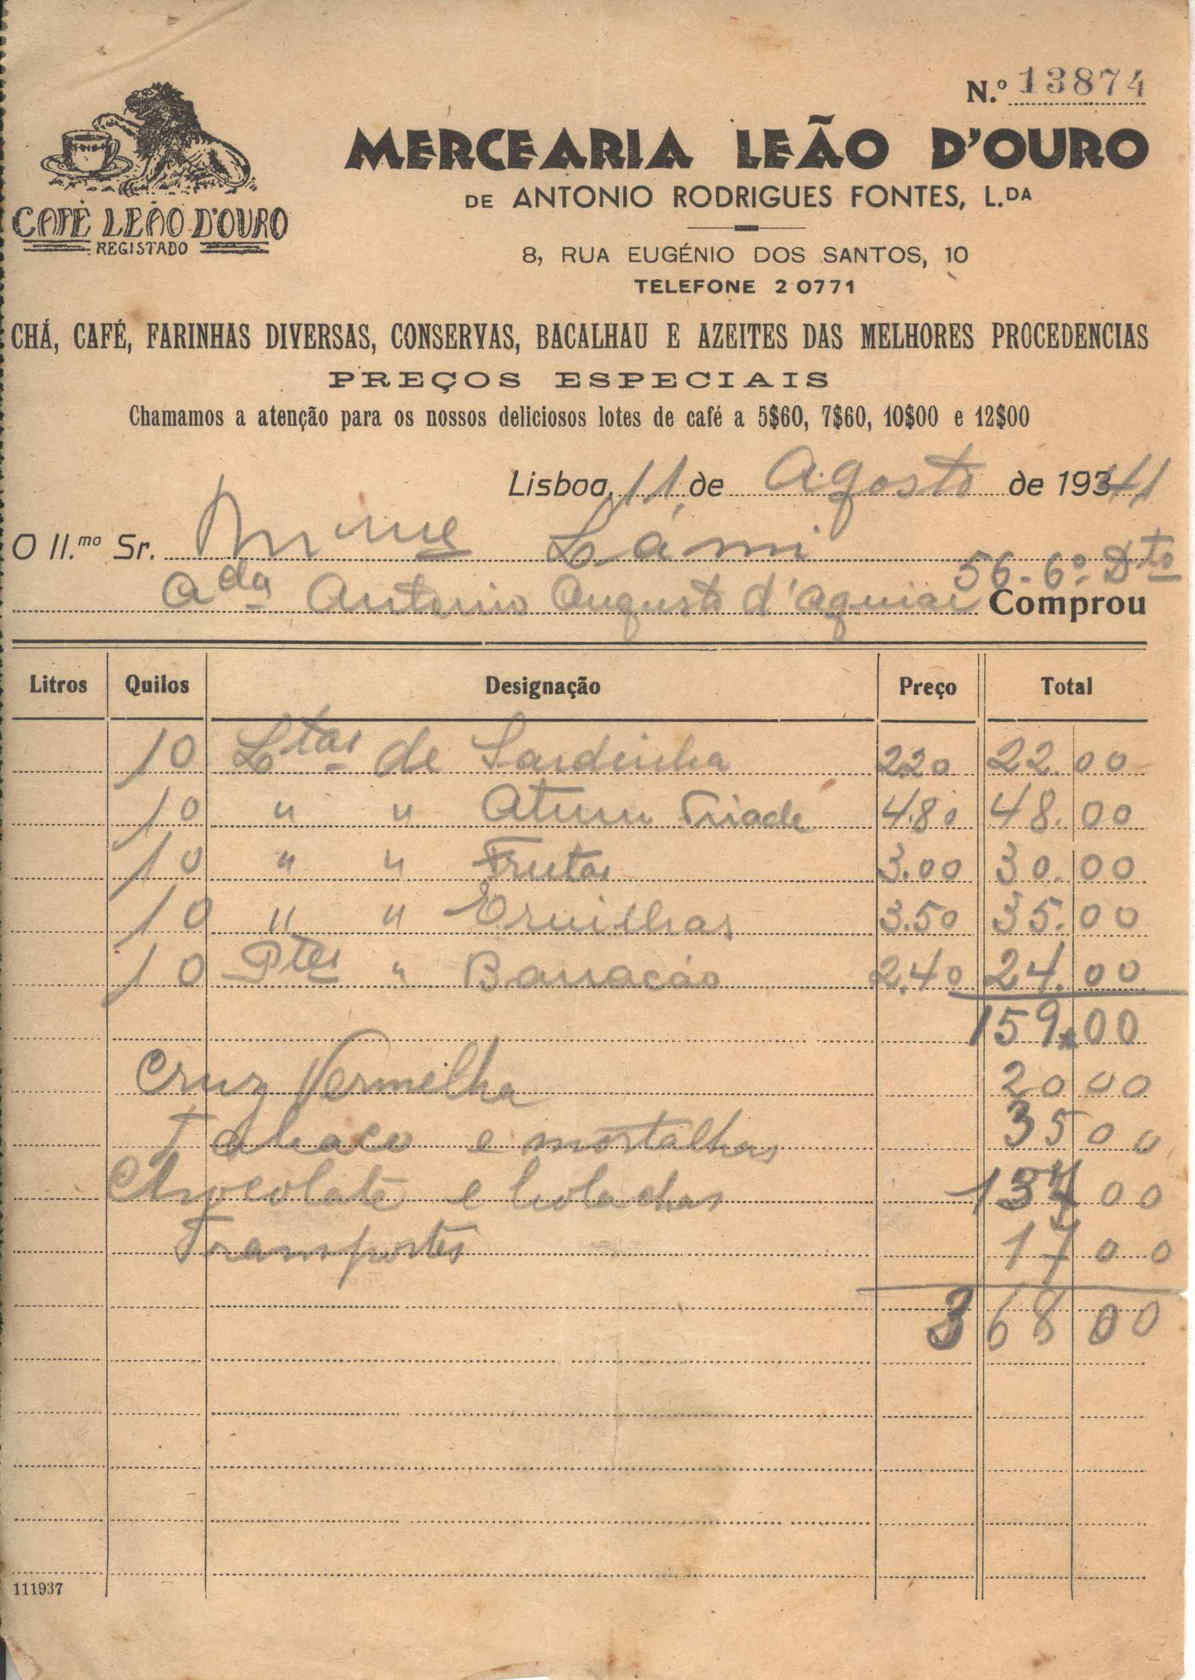 N.º 13874
MERCEARIA LEÃO D'OURO
DE ANTONIO RODRIGUES FONTES, L.DA
CAFÉ LEÃO D'OURO
REGISTADO
8, RUA EUGÉNIO DOS SANTOS, 10
TELEFONE 2 0771
CHÁ, CAFÉ, FARINHAS DIVERSAS, CONSERVAS, BACALHAU E AZEITES DAS MELHORES PROCEDENCIAS
PREÇOS ESPECIAIS
Chamamos a atenção para os nossos deliciosos lotes de café a 5$60, 7$60, 10$00 e 12$00
Lisboa, 11 de Agosto de 1941
O Il.mo Sr. Mme Lámi
Ada Antonio Augusto d'Aguiar 56-6º Dto
Comprou
Litros Quilos Designação Preço Total
10 Ltas de Sardinha 2.20 22.00
10 " " Atum Triade 4.80 48.00
10 " " Frutas 3.00 30.00
10 " " Ervilhas 3.50 35.00
10 Ptes " 2.40 24.00
159.00
Cruz Vermelha 20 00
Tabaco e mortalhas 35 00
Chocolate e bolachas 137 00
Transportes 17 00
368 00
111937